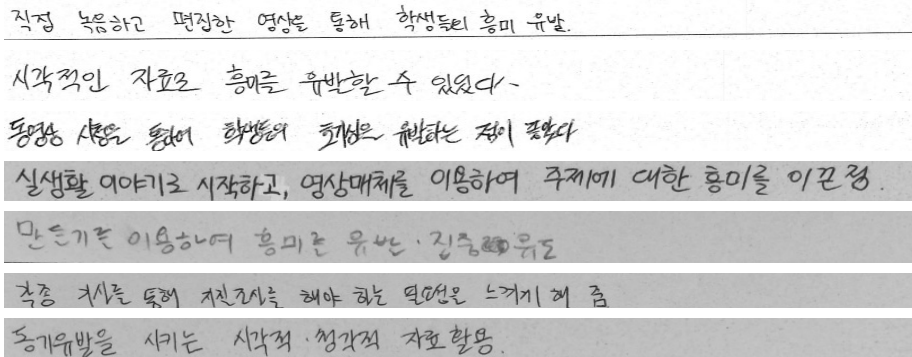 직접 녹음하고 편집한 영상을 통해 학생들의 흥미 유발.
시각적인 자료로 흥미를 유발할 수 있었다.
동영상 시청을 통하여 학생들의 호기심을 유발하는 점이 좋았다
실생활 이야기로 시작하고, 영상매체를 이용하여 주제에 대한 흥미를 이끈점.
만들기를 이용하여 흥미를 유발·집중 유도
각종 기사를 통해 지진조사를 해야 하는 필요성을 느끼게 해 줌
동기유발을 시키는 시각적·청각적 자료활용.